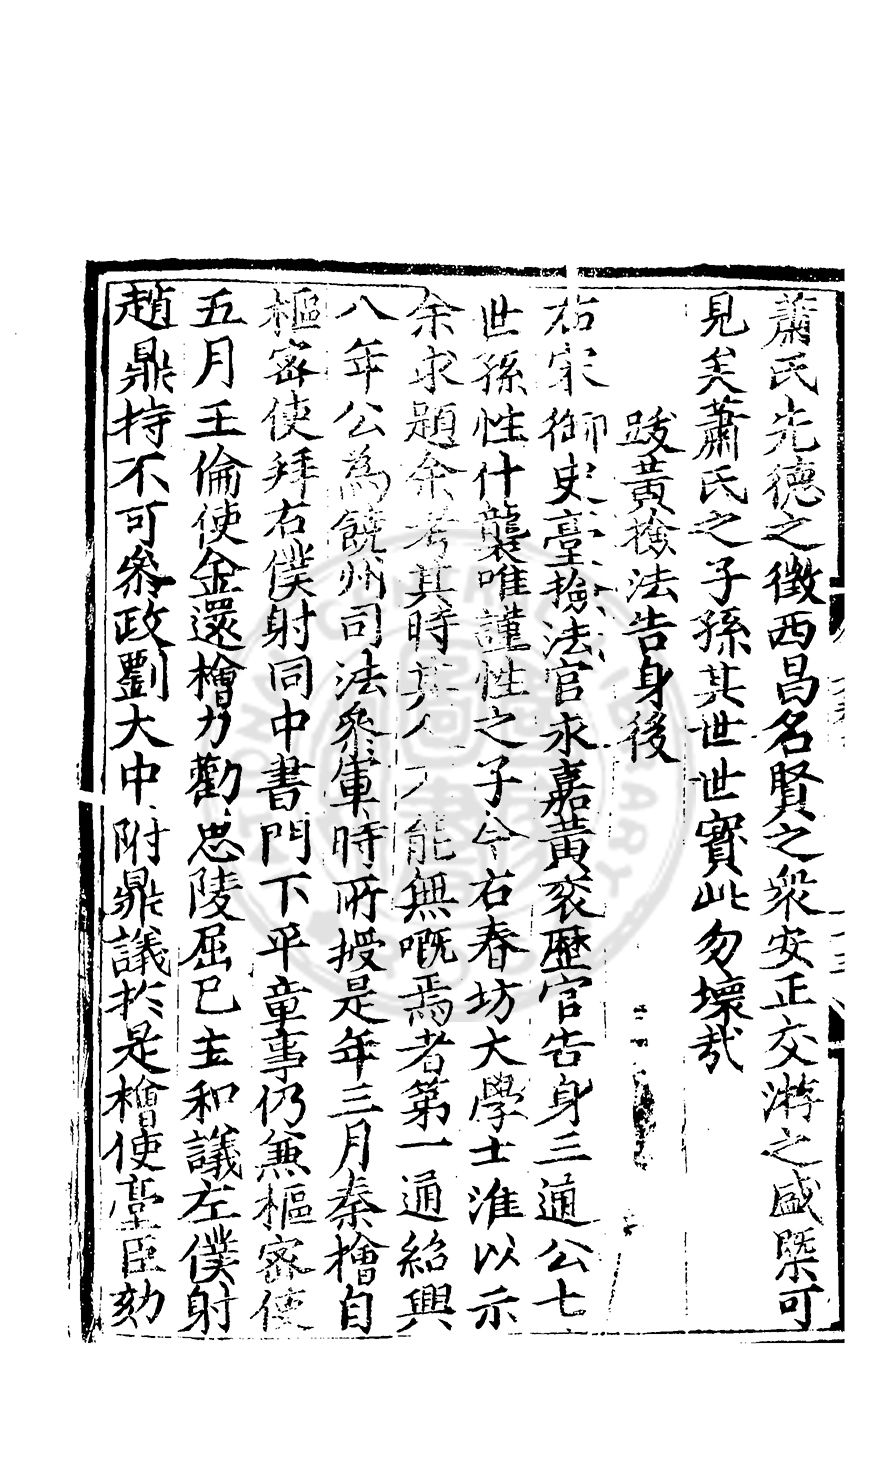 蕭氏先德之徵西昌名賢之衆安正交游之盛槩可
見矣蕭氏之子孫其世世寳此勿壞哉
跋黃撿法告身後
右宋御史臺撿法官永嘉黃衮歷官告身三通公七
世孫性什襲唯謹性之子今右春坊大學士淮以示
余求題余考其時其人不能無嘅焉者第一通紹興
八年公為饒州司法叅軍時所授是年三月秦檜自
樞密使拜右僕射同中書門下平章事仍兼樞密使
五月王倫使金還檜力勸思陵屈已主和議左僕射
趙鼎持不可叅政劉大中附鼎議扵是檜使臺臣劾